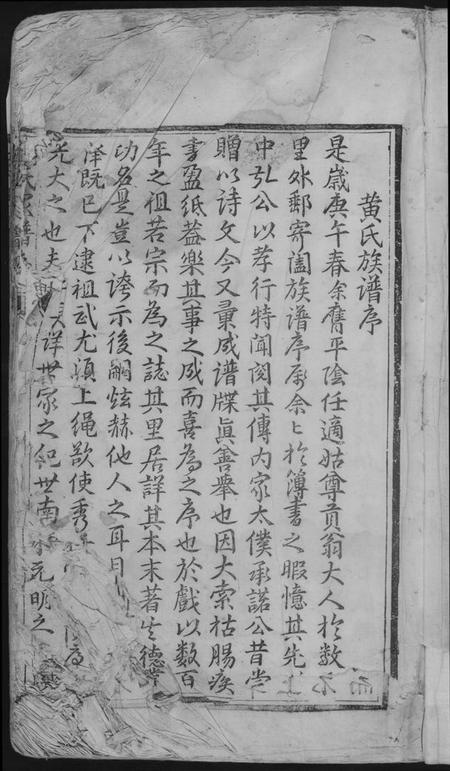 黄氏族谱序
是歲庚午春余膺平陰任適姑尊貢翁大人於數
里外郵寄闔族譜序屬余余於簿書之暇憶其先
中弘公以孝行特聞閱其傳內家太僕承諾公昔嘗
贈以詩文今又彙成譜牒真善舉也因大索枯腸疾
書盈紙蓋樂其事之成而喜為之序也於戲以数百
年之祖若宗而為之誌其里居詳其本末著其德
功名是豈以誇示後嗣炫赫他人之耳目
澤既已下逮祖武尤須上绳歆使秀
光大之也夫 詳世家之紀世南 元明之